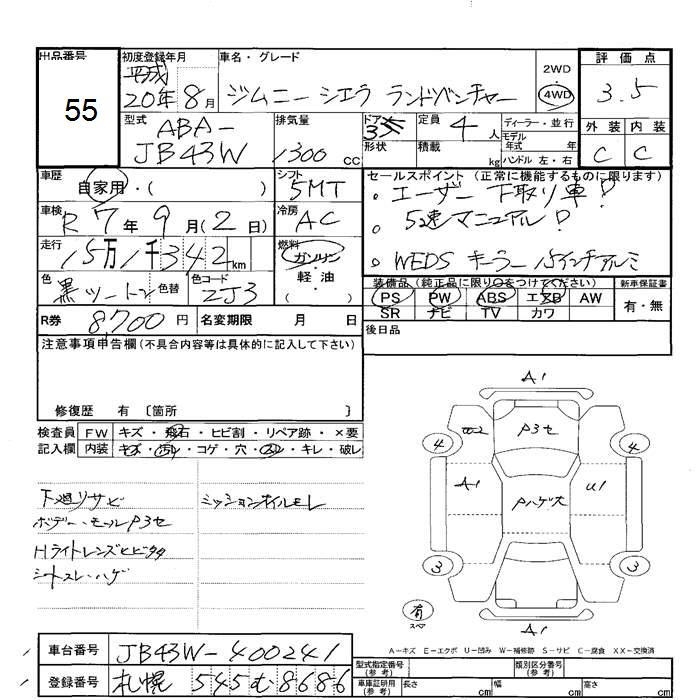 出品番号
55
初度登録年月
平成
20年8月
車名・グレード
ジムニーシエラ ランドベンチャー
2WD
4WD
評価点
3.5
型式
ABA-
JB43W
排気量
1300 cc
ドア
35
形状
定員
4 人
積載
kg
ディーラー・並行
モデル
年式 年
ハンドル 左・右
外装
内装
C
C
車歴
自家用・( )
シフト
5MT
セールスポイント (正常に機能するものに限ります)
・ユーザー下取り車!
・5速マニュアル!
・WEDS キーラー 15インチアルミ
車検
R7年9月(2日)
冷房
AC
走行
15万1千342km
燃料
ガソリン
軽・油
( )
色
黒ツートン
色替
色コード
ZJ3
装備品(純正品に限り○をつけてください)
PS PW ABS エアB AW
SR ナビ TV カワ
新車保証書
有・無
R券
8,700円
名変期限 月 日
後日品
注意事項申告欄(不具合内容等は具体的に記入して下さい)
修復歴 有 〔箇所 〕
検査員
記入欄
FW
キズ・飛石・ヒビ割・リペア跡・×要
内装
キズ・汚れ・コゲ・穴・スレ・キレ・破レ
下廻リサビ
ボデー・モールPヨセ
Hライトレンズヒビ
シートスレ・ハゲ
ミッションオイルモレ
A1
W2
Pヨセ
4
4
A1
Pハゲ大
U1
3
3
有
スペア
A1
A－キズ E－エクボ U－凹み W－補修跡 S－サビ C－腐食 XX－交換済
車台番号
JB43W-400241
登録番号
札幌 545 む 8686
型式指定番号
(参考)
類別区分番号
(参考)
車庫証明用
(参考)
長さ cm
幅 cm
高さ cm